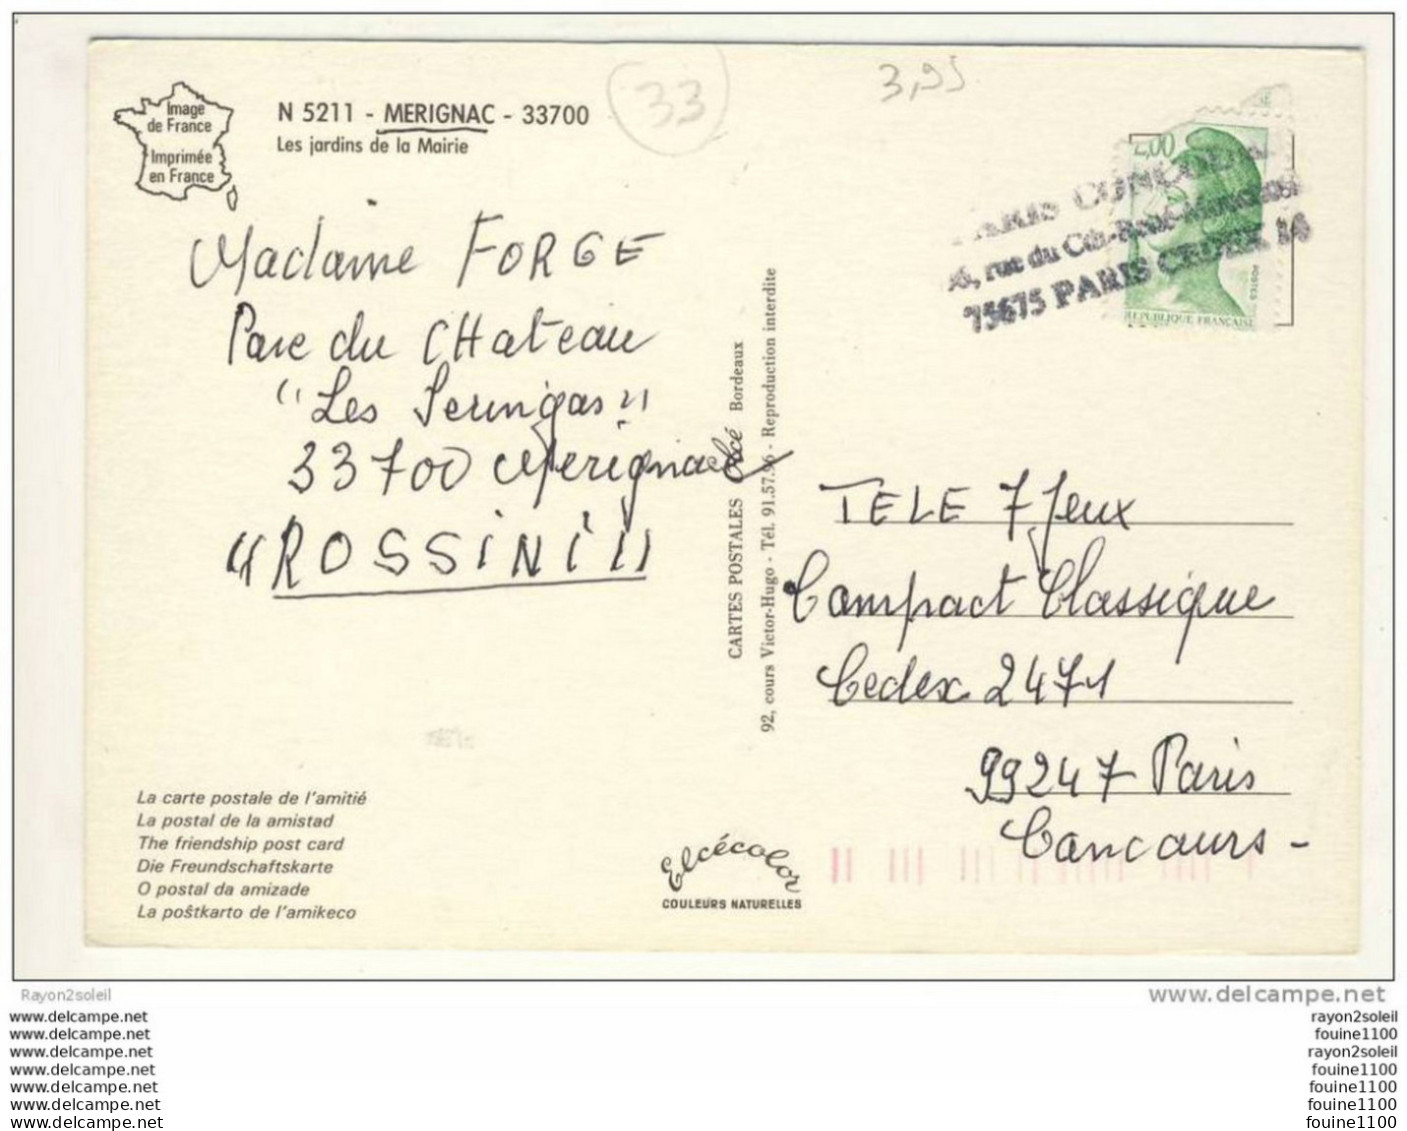 Image
de France
Imprimée
en France
N 5211 - MERIGNAC - 33700
Les jardins de la Mairie
33
3,95
Madame FORGE
Parc du CHateau
"Les Seringas"
33700 Merignac
"ROSSINI"
2,00
POSTES
REPUBLIQUE FRANÇAISE
PARIS CONCOURS
rue du Cdt-René-Mouchotte
75675 PARIS CEDEX 14
CARTES POSTALES Elcé Bordeaux
92, cours Victor-Hugo - Tél. 91.57.96 - Reproduction interdite
TELE 7 Jeux
Compact Classique
Cedex 2471
99247 Paris
Concours -
La carte postale de l'amitié
La postal de la amistad
The friendship post card
Die Freundschaftskarte
O postal da amizade
La poŝtkarto de l'amikeco
Elcécolor
COULEURS NATURELLES
Rayon2soleil
www.delcampe.net
www.delcampe.net
www.delcampe.net
www.delcampe.net
www.delcampe.net
www.delcampe.net
www.delcampe.net
www.delcampe.net
rayon2soleil
fouine1100
rayon2soleil
fouine1100
fouine1100
fouine1100
fouine1100